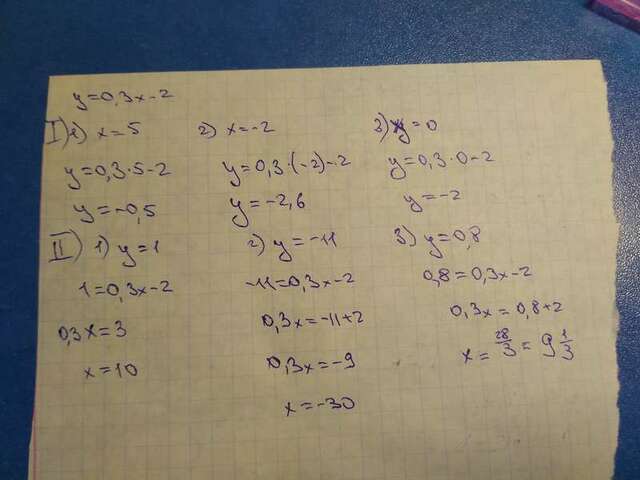 y=0,3x-2
I) 1) x=5 2) x=-2 3) y=0
y=0,3·5-2 y=0,3·(-2)-2 y=0,3·0-2
y=-0,5 y=-2,6 y=-2
II) 1) y=1 2) y=-11 3) y=0,8
1=0,3x-2 -11=0,3x-2 0,8=0,3x-2
0,3x=3 0,3x=-11+2 0,3x=0,8+2
x=10 0,3x=-9 x=28/3=9 1/3
x=-30